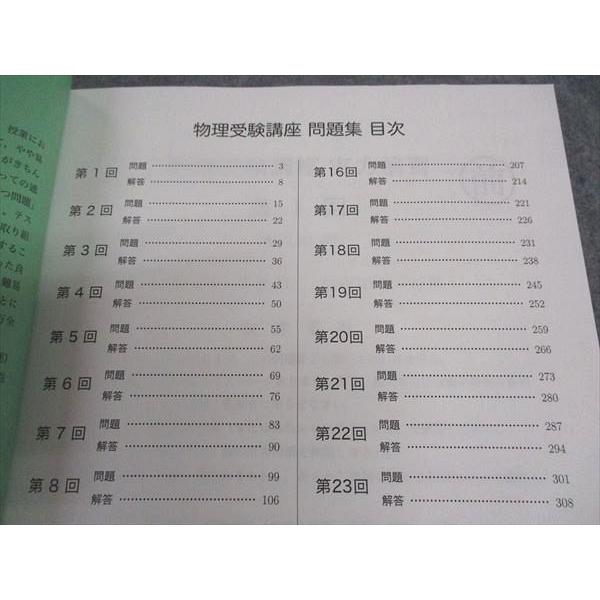 物理受験講座 問題集 目次
第1回 問題 3
解答 8
第2回 問題 15
解答 22
第3回 問題 29
解答 36
第4回 問題 43
解答 50
第5回 問題 55
解答 62
第6回 問題 69
解答 76
第7回 問題 83
解答 90
第8回 問題 99
解答 106
第16回 問題 207
解答 214
第17回 問題 221
解答 226
第18回 問題 231
解答 238
第19回 問題 245
解答 252
第20回 問題 259
解答 266
第21回 問題 273
解答 280
第22回 問題 287
解答 294
第23回 問題 301
解答 308
授業にお
、やや気
がきちん
っての通
つ問題」
、テス
取り組
するこ
た良
難易
とに
万全